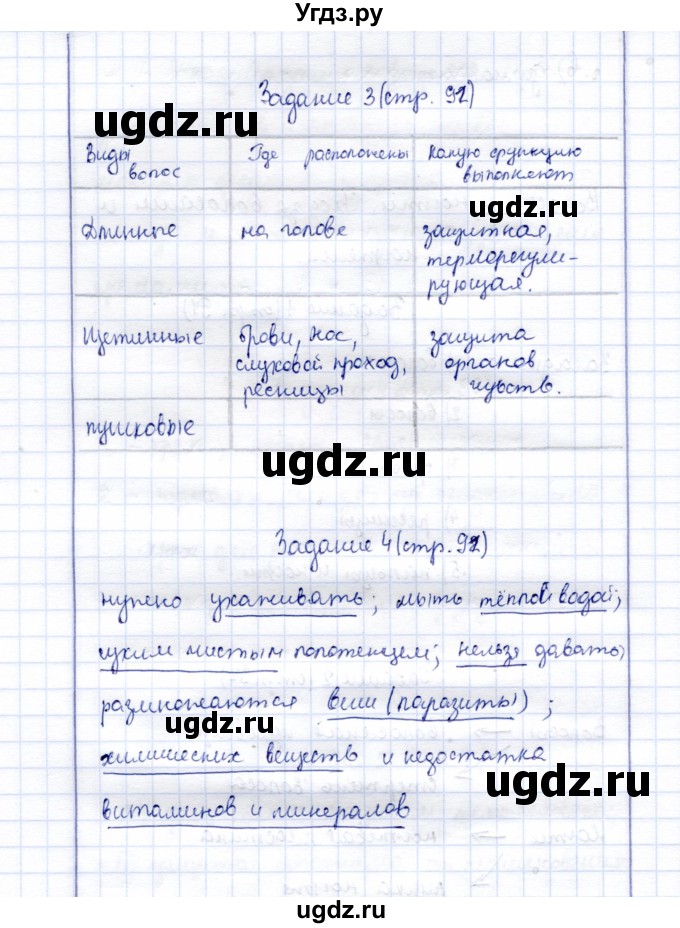 Угдз.ру
Задание 3 (стр. 92)
ugdz.ru
Виды волос | Где расположены | Какую функцию выполняют
ugdz.ru
Длинные | на голове | защитная, терморегулирующая.
Щетинные | брови, нос, слуховой проход, ресницы | защита органов чувств.
пушковые
ugdz.ru
Задание 4 (стр. 92)
нужно ухаживать; мыть тёплой водой;
ugdz.ru
сухим чистым полотенцем; нельзя давать;
размножаются вши (паразиты);
химических веществ и недостатка
ugdz.ru
витаминов и минералов
ugdz.ru